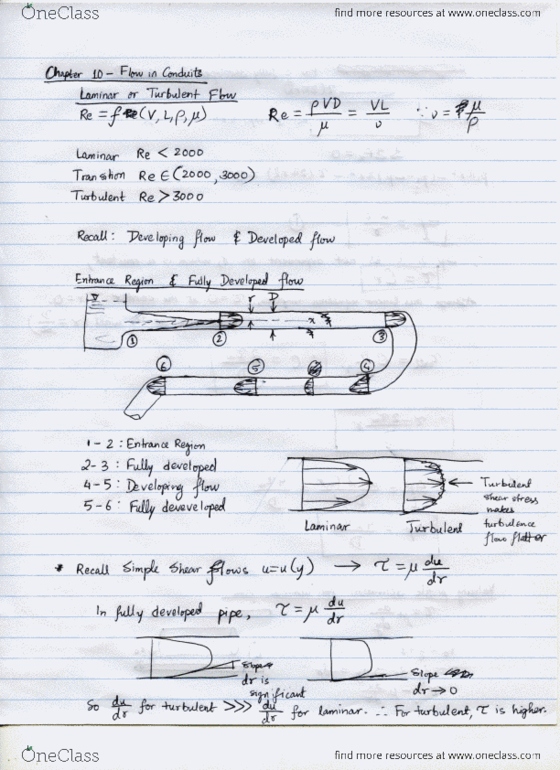 OneClass
find more resources at www.oneclass.com
Chapter 10 - Flow in Conduits
Laminar or Turbulent Flow
Re = f (V, L, ρ, μ)   Re = ρVD/μ = VL/υ   ∵ υ = μ/ρ
Laminar Re < 2000
Transition Re ∈ (2000, 3000)
Turbulent Re > 3000
Recall: Developing flow & Developed flow
Entrance Region & Fully Developed flow
r D
x
① ② ③
⑥ ⑤ ④
1-2 : Entrance Region
2-3 : Fully developed
4-5 : Developing flow
5-6 : Fully deveveloped
Laminar Turbulent
Turbulent
shear stress
makes
turbulence
flow flatter
• Recall Simple Shear flows u=u(y) → τ = μ du/dr
In fully developed pipe, τ = μ du/dr
Slope
dr is
significant
Slope
dr → 0
So du/dr for turbulent >>> du/dr for laminar. ∴ For turbulent, τ is higher.
OneClass
find more resources at www.oneclass.com